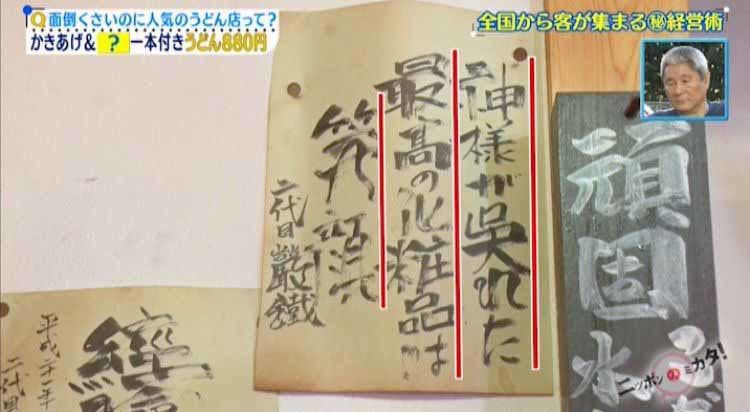 Q面倒くさいのに人気のうどん店って?
かきあげ&?一本付きうどん880円
全国から客が集まる㊙経営術
神様が呉れた
最高の化粧品は
笑顔
二代目巌鐵
頑固
水
平成二十一年
二代目
ニッポンのミカタ!